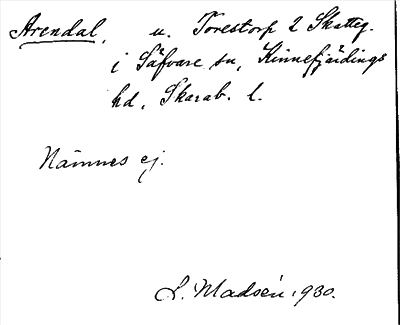 Arendal, u. Torestorp 2 Skatteg.
i Säfvare sn, Kinnefjärdings
hd, Skarab. l.
Nämnes ej.
L. Madsén 1930.